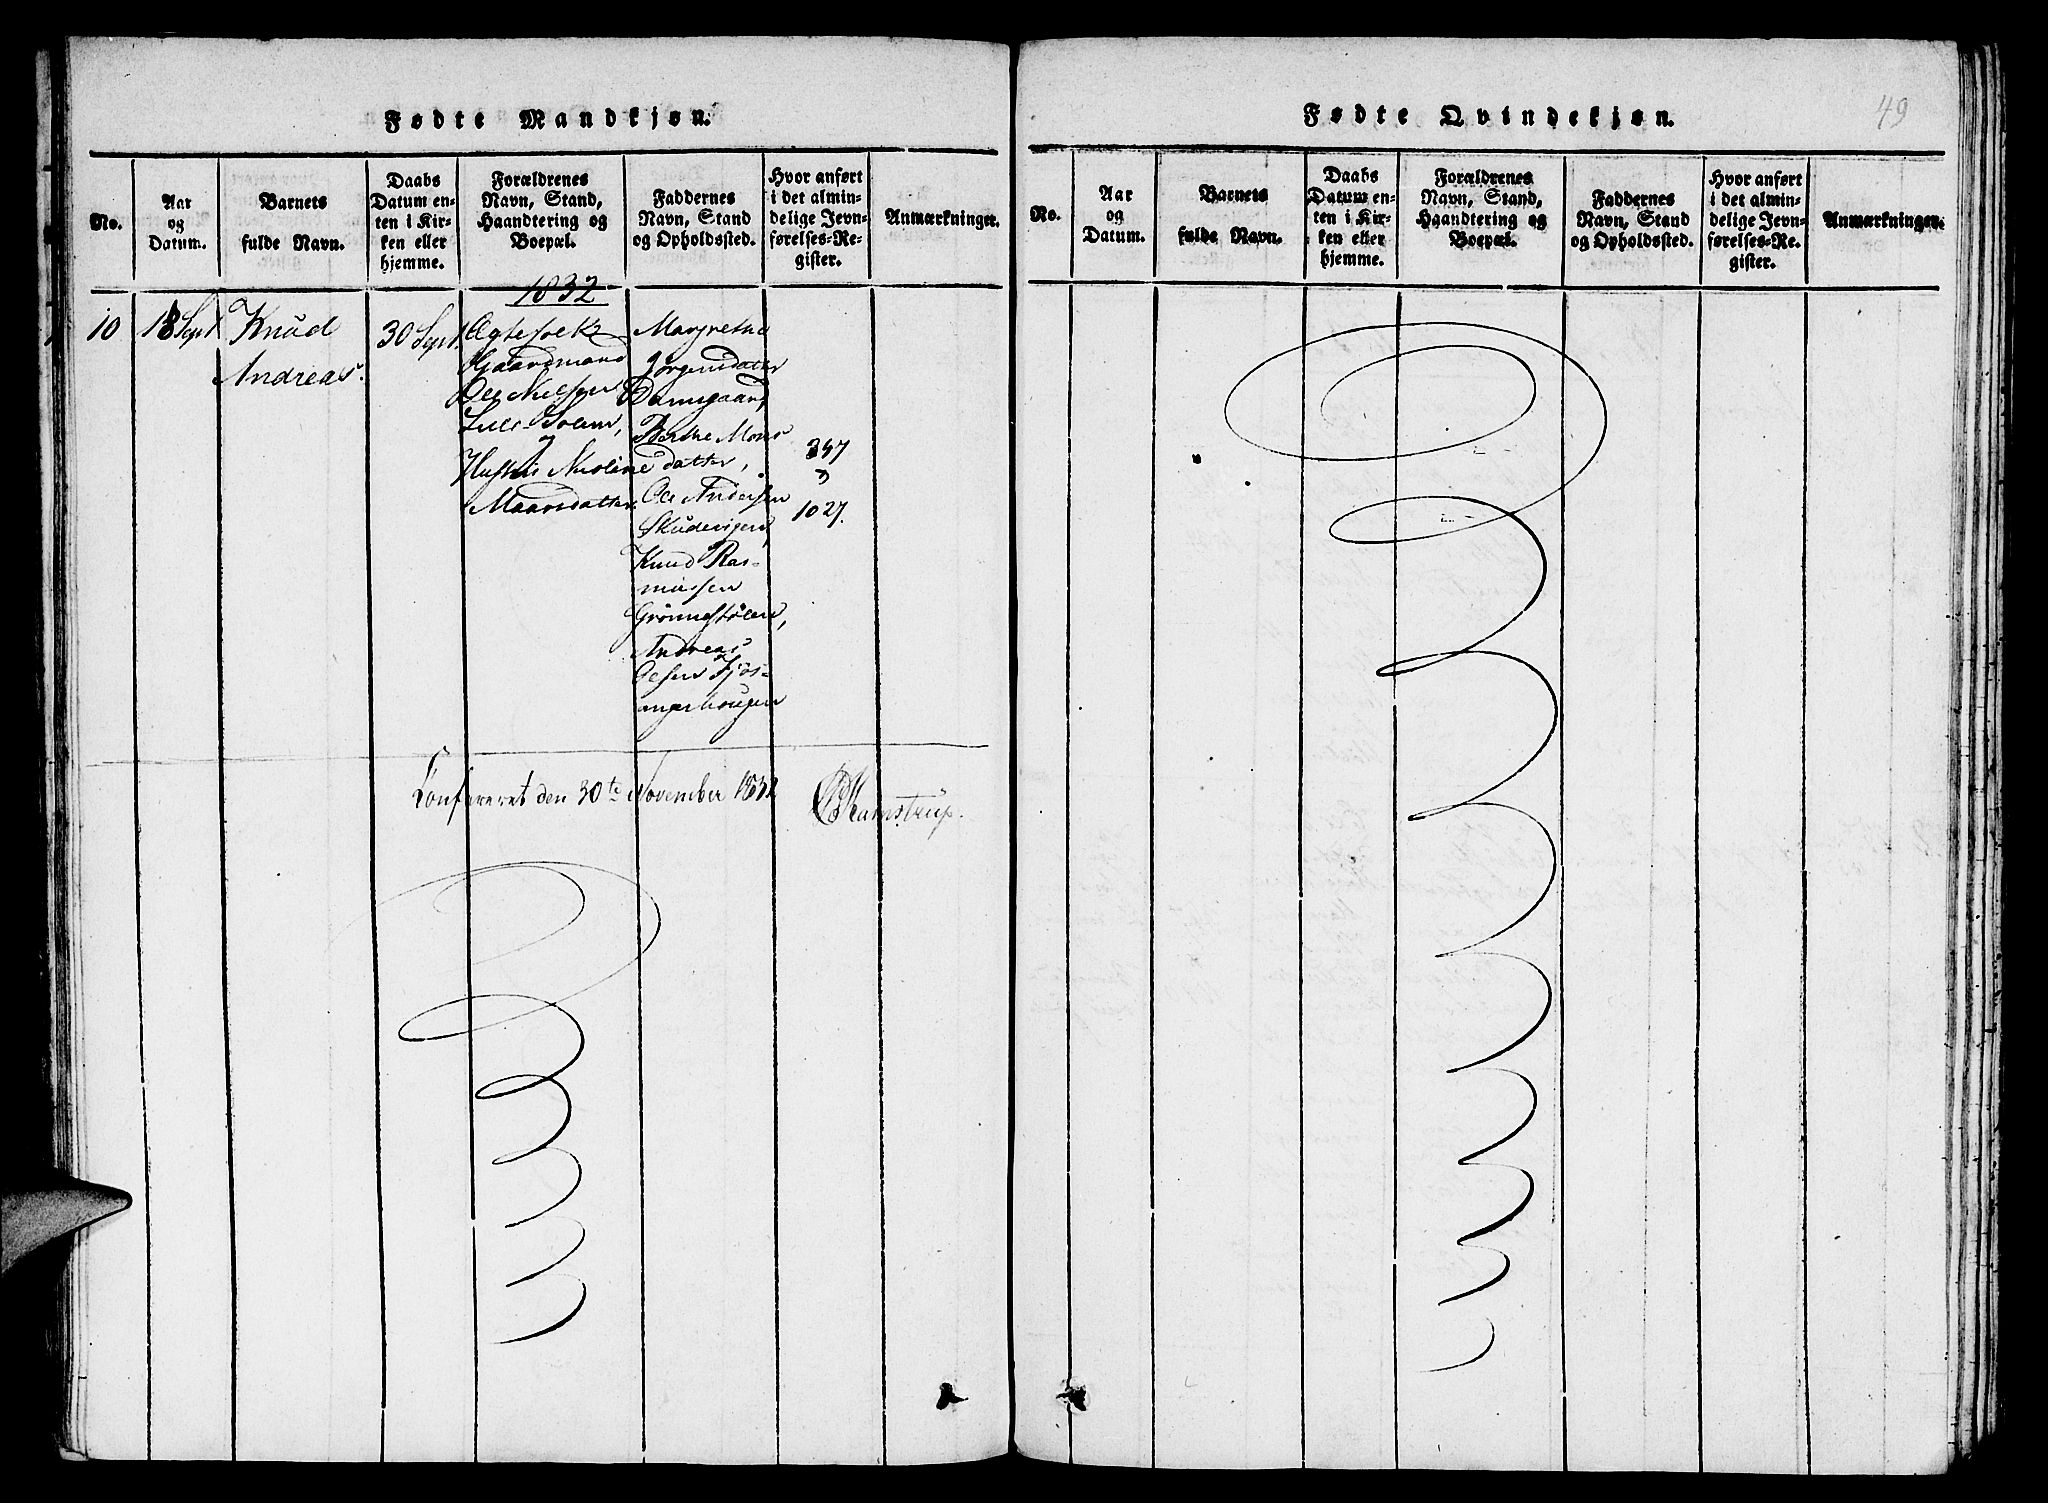 Fødte Mandkjøn.
No.
Aar
og
Datum.
Barnets
fulde Navn.
Daabs
Datum en-
ten i Kir-
ken eller
hjemme.
Forældrenes
Navn, Stand,
Haandtering og
Boepæl.
Faddernes
Navn, Stand
og Opholdssted.
Hvor anført
i det almin-
delige Jevn-
førelses-Re-
gister.
Anmærkninger.
1832
10
18 Sept
Knud
Andreas.
30 Sept.
Ægtefolk
Gaardmand
Ole Nielsen
og
Hustru
Maansdatter
Margrethe
Jørgensdatter
Berthe Mons
datter,
Ole Andersen
Skudevigen,
Knud Ras-
mussen
Andreas
Olsen Fjøs-
angerhougen
347
1027.
Confereret den 30te November 1832
Kamstrup.
Fødte Qvindekjøn.
49
No.
Aar
og
Datum.
Barnets
fulde Navn.
Daabs
Datum en-
ten i Kir-
ken eller
hjemme.
Forældrenes
Navn, Stand,
Haandtering og
Boepæl.
Faddernes
Navn, Stand
og Opholdssted.
Hvor anført
i det almin-
delige Jevn-
førelses-Re-
gister.
Anmærkninger.